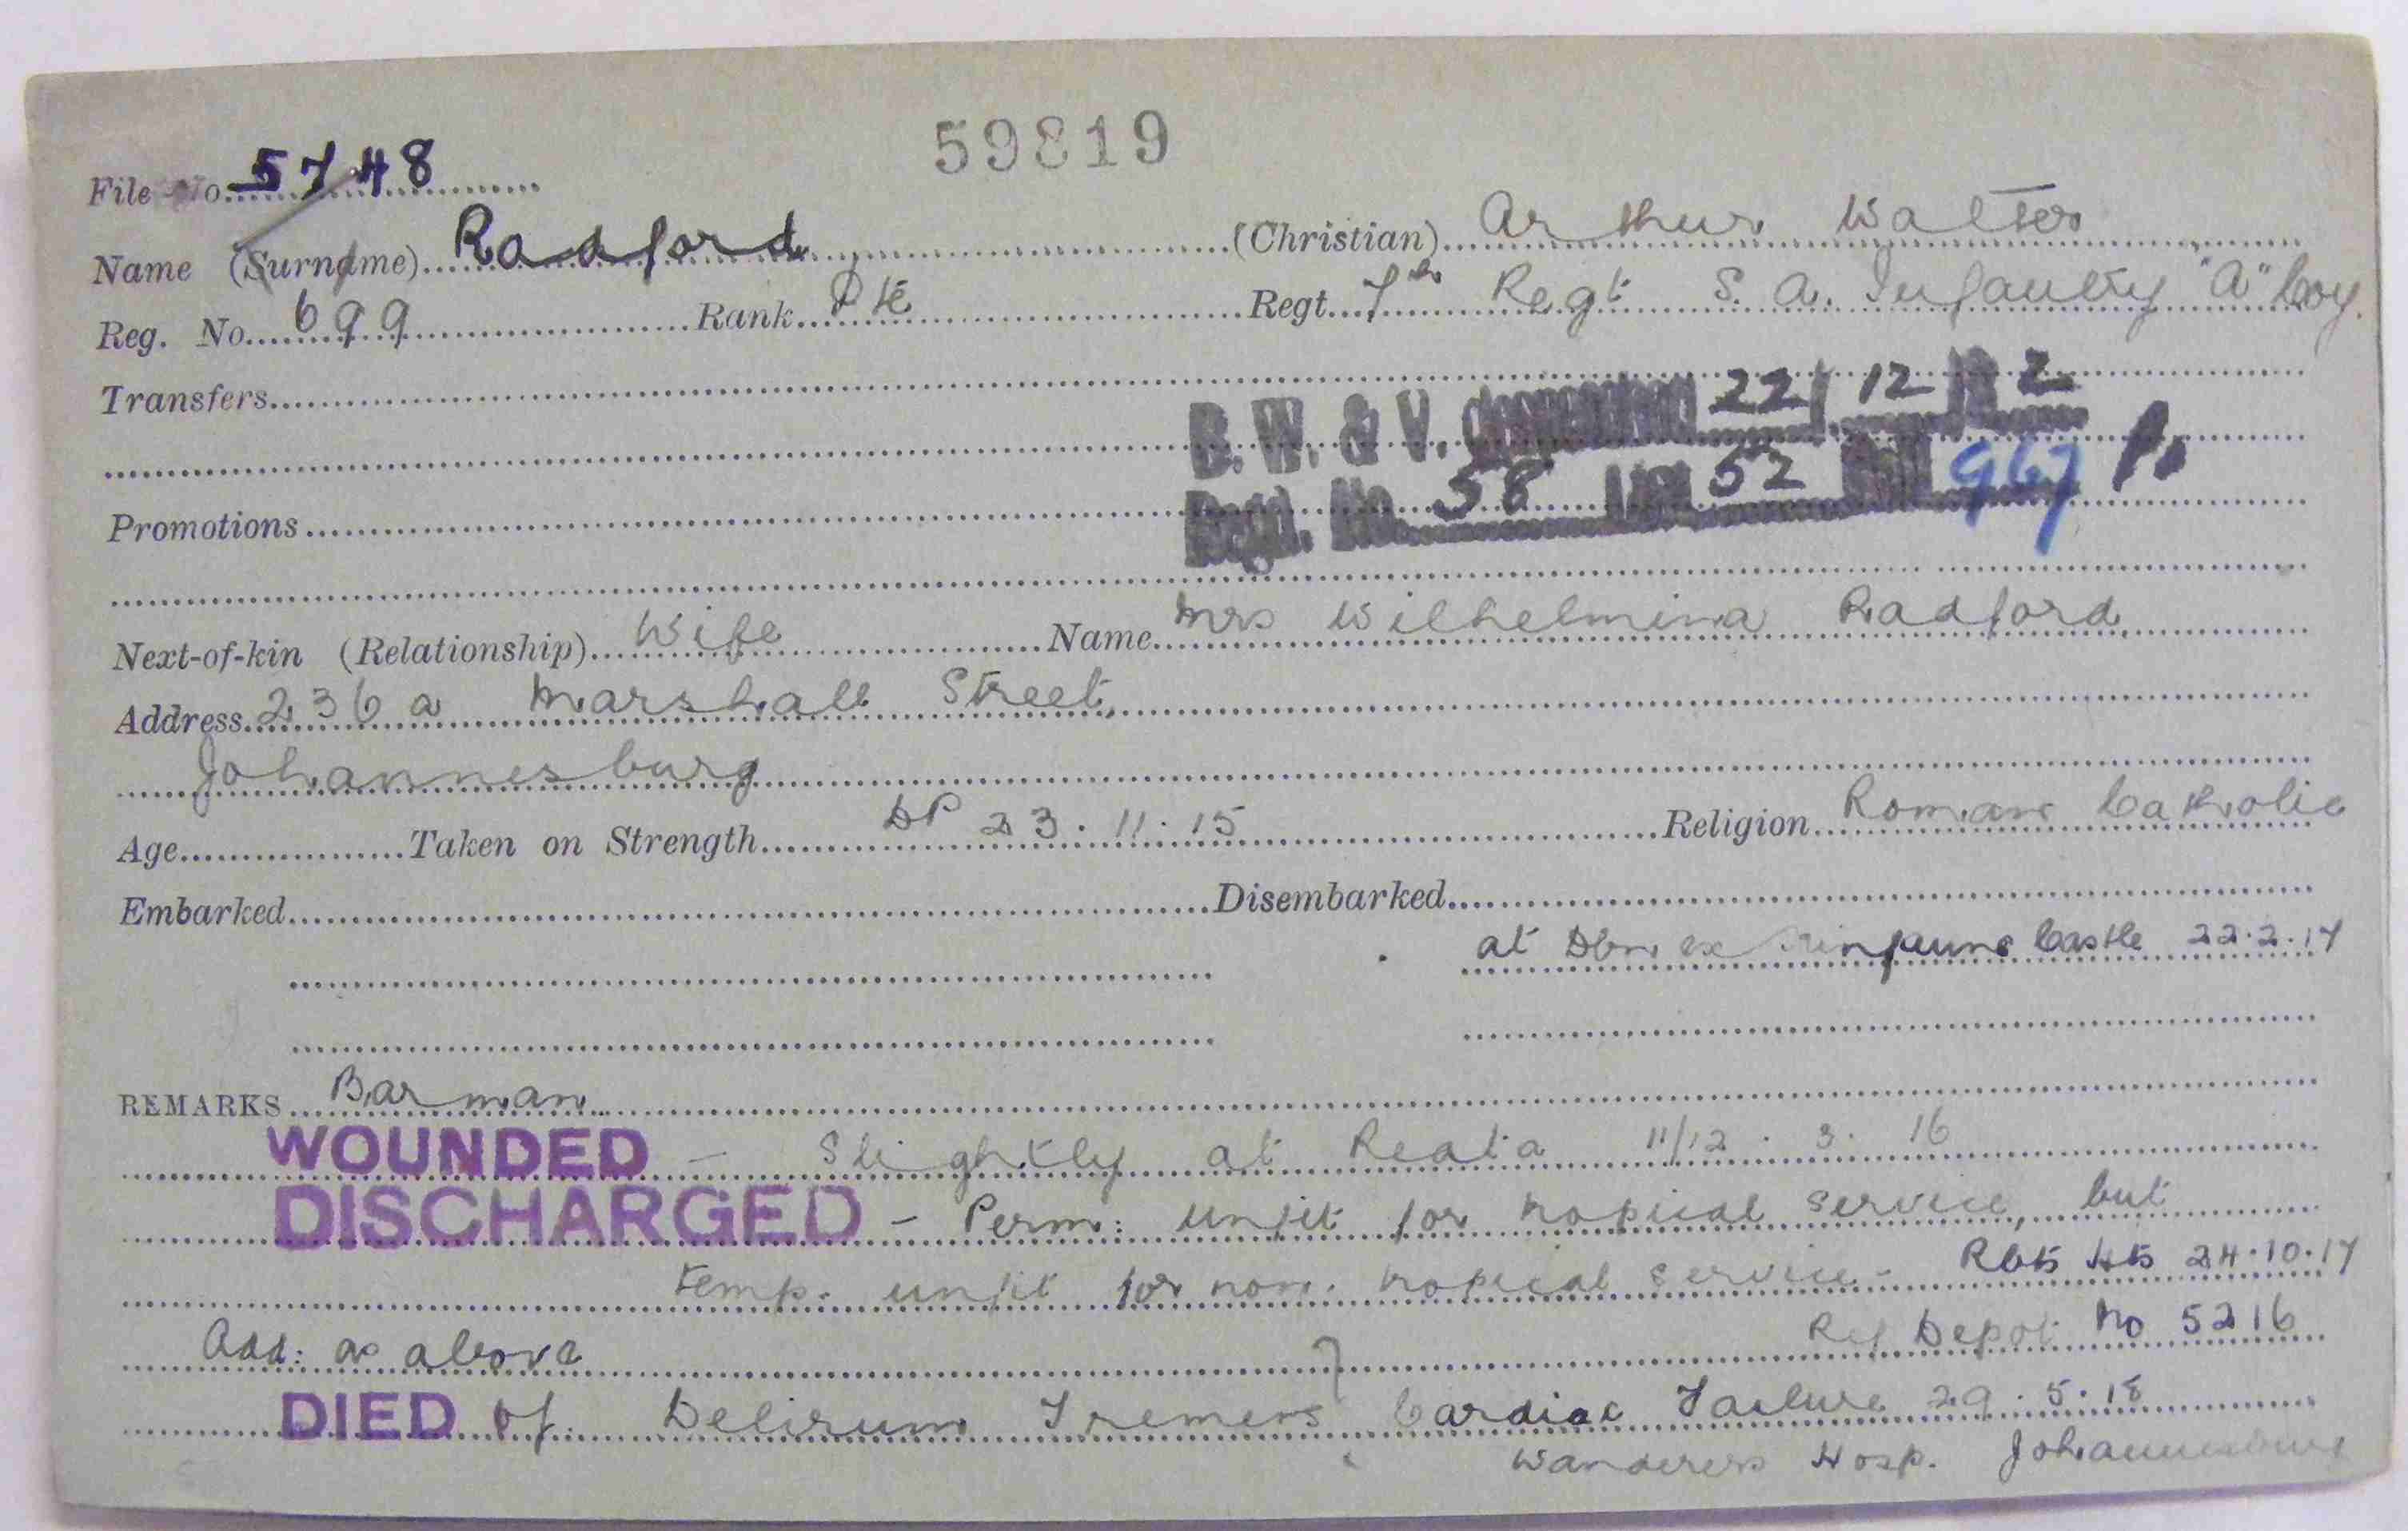 59819
File No. 5748
Name (Surname) Radford (Christian) Arthur Walter
Reg. No. 699 Rank Pte Regt. 7th Regt S. A. Infantry "A" Coy.
Transfers
B. W. & V. despatched 22/12/ 2
Regd. No. 58 List 52 967
Promotions
Next-of-kin (Relationship) Wife Name Mrs Wilhelmina Radford
Address 236 a Marshall Street,
Johannesburg
Age Taken on Strength DP 23.11.15 Religion Roman Catholic
Embarked Disembarked
at Dbn ex Kinfauns Castle 22.2.17
REMARKS Barman
WOUNDED - Slightly at Reata 11/12.3.16
DISCHARGED - Perm: unfit for tropical service, but
temp. unfit for non. tropical service - Rbts Hts 24.10.17
Add: as above Ref Depot No 5216
DIED of Delirum Tremens Cardiac Failure 29.5.18
Wanderers Hosp. Johannesburg